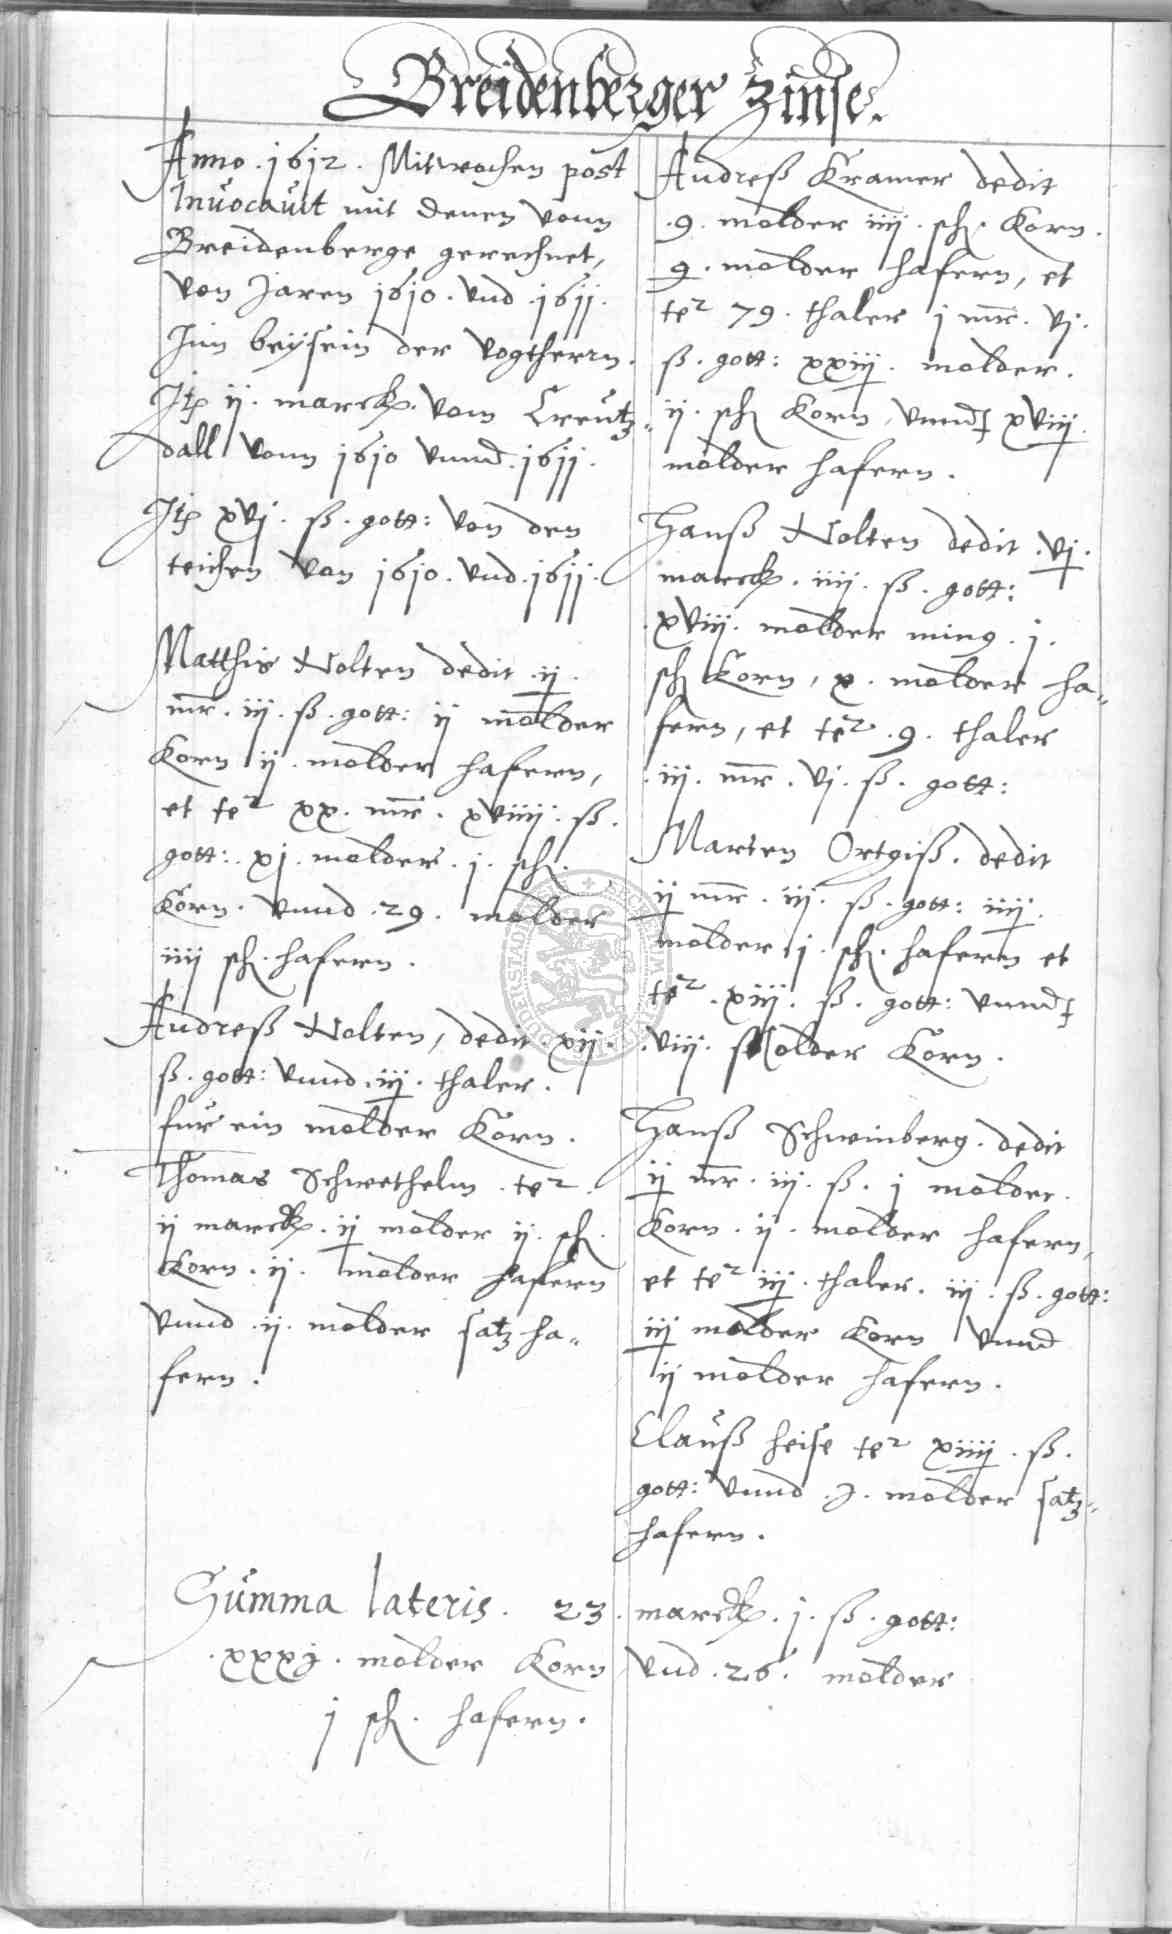 Breidenberger Zinse.
Anno .1612. Mitwochen post
Invocavit mit denen vonn
Breidenberge gerechnet,
von Jaren 1610. vnd .1611.
Jnn beÿsein der Vogtherrn.
Jtp ij. marck. vom Creutz-
dall vonn 1610 vnnd .1611.
Jtp xvj. ß. gott: von den
teichen von 1610. vnd .1611.
Matthis Nolten dedit .ij.
mr. iij. ß. gott: ij molder
Korn ij. molder hafern,
et te² xx. mr. xviiij. ß.
gott: xj. molder. j. sch.
Korn. vnnd .29. molder
iiij sch. hafern.
Andreß Nolten, dedit .xij.
ß. gott: vnnd .iij. thaler.
fur ein molder Korn.
Thomas Schwethelm .te².
ij marck. ij molder ij. sch.
Korn. ij. molder hafern
vnnd .ij. molder satz ha-
fern.
Andreß Kramer dedit
.9. molder iiij. sch. Korn.
9. molder hafern, et
te² 79. thaler j mr. vj.
ß. gott: xxiij. molder.
ij. sch Korn, vnnd xviij.
molder hafern.
Hanß Nolten dedit .vj.
marck. iiij. ß. gott:
.xviij. molder ming .j.
sch Korn, x. molder ha-
fern, et te² .9. thaler
.iij. mr. vj. ß. gott:
Marten Ortgiß. dedit
ij mr. iij. ß. gott: iiij.
molder j. sch. hafern et
te² .xiij. ß. gott: vnnd
.viij. Molder Korn.
Hanß Schwinberg. dedit
ij mr. iij. ß. j molder.
Korn. ij. molder hafern,
et te² iij. thaler. iij. ß. gott:
iij molder Korn vnnd
ij molder hafern.
Clauß heise te² xiiij. ß.
gott: vnnd .j. molder satz-
hafern.
Summa lateris. 23. marck. j. ß. gott:
.xxxj. molder Korn vnd .26. molder
j sch. hafern.